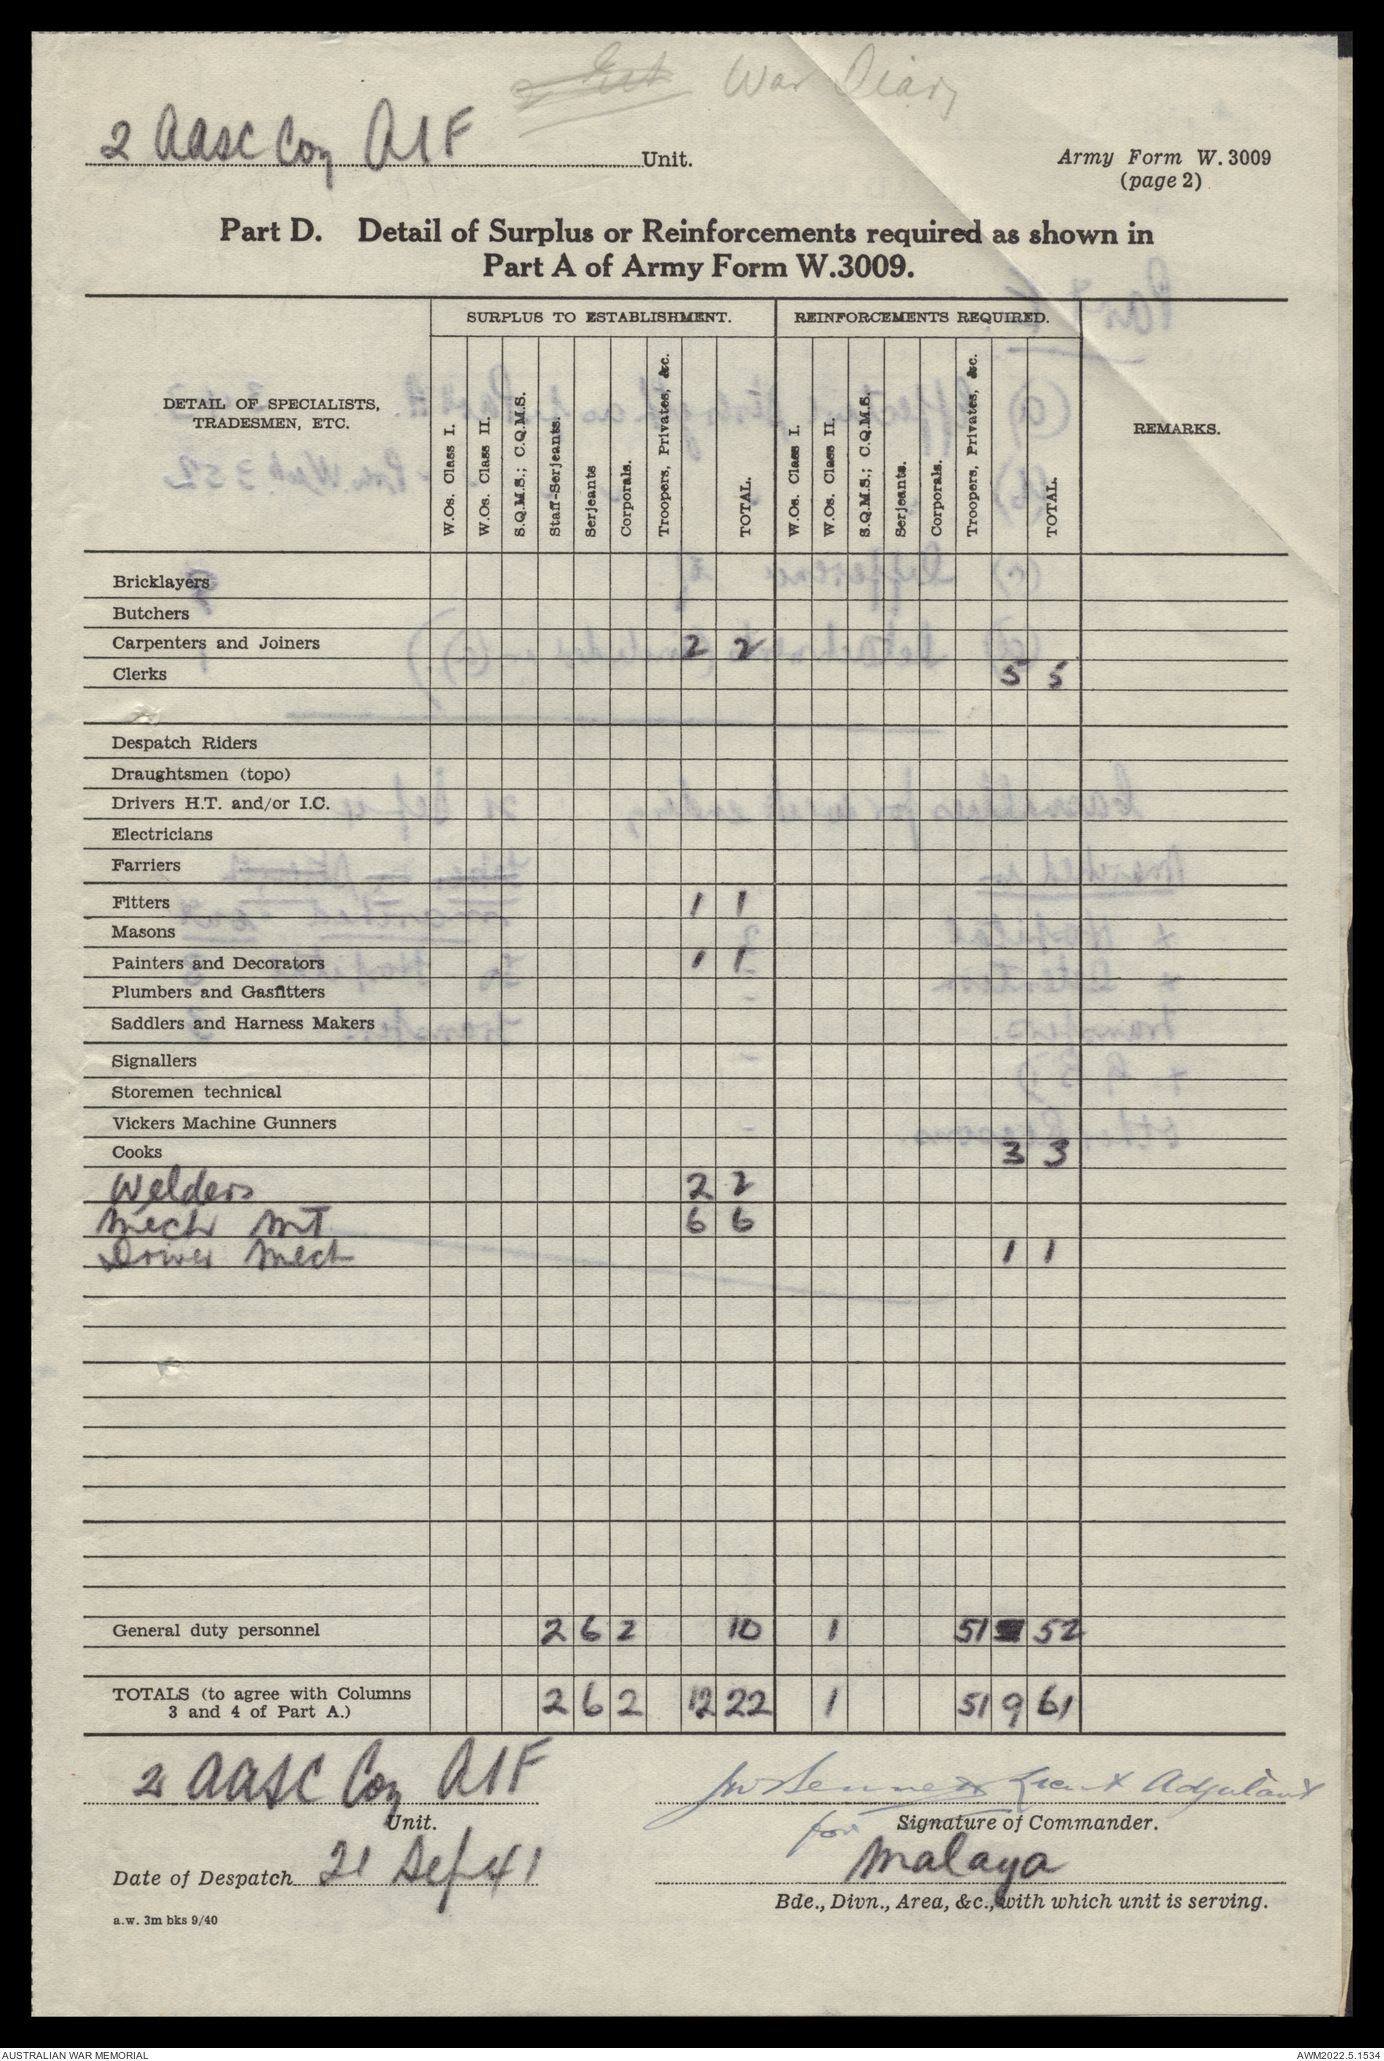 War Diary
2 AASC Coy AIF Unit.
Army Form W. 3009
(page 2)
Part D. Detail of Surplus or Reinforcements required as shown in
Part A of Army Form W.3009.
DETAIL OF SPECIALISTS,
TRADESMEN, ETC.
SURPLUS TO ESTABLISHMENT.
REINFORCEMENTS REQUIRED.
REMARKS.
W.Os. Class I.
W.Os. Class II.
S.Q.M.S.; C.Q.M.S.
Staff-Serjeants.
Serjeants
Corporals.
Troopers, Privates, &c.
TOTAL.
W.Os. Class I.
W.Os. Class II.
S.Q.M.S.; C.Q.M.S.
Serjeants.
Corporals.
Troopers, Privates, &c.
TOTAL.
Bricklayers
Butchers
Carpenters and Joiners 2 2
Clerks 5 5
Despatch Riders
Draughtsmen (topo)
Drivers H.T. and/or I.C.
Electricians
Farriers
Fitters 1 1
Masons
Painters and Decorators 1 1
Plumbers and Gasfitters
Saddlers and Harness Makers
Signallers
Storemen technical
Vickers Machine Gunners
Cooks 3 3
Welders 2 2
Mech MT 6 6
Driver Mech 1 1
General duty personnel 2 6 2 10 1 51 52
TOTALS (to agree with Columns
3 and 4 of Part A.) 2 6 2 12 22 1 51 9 61
2 AASC Coy AIF
Unit.
Lieut Adjutant
for Signature of Commander.
Date of Despatch 21 Sep 41
Malaya
Bde., Divn., Area, &c., with which unit is serving.
a.w. 3m bks 9/40
AUSTRALIAN WAR MEMORIAL
AWM2022.5.1534